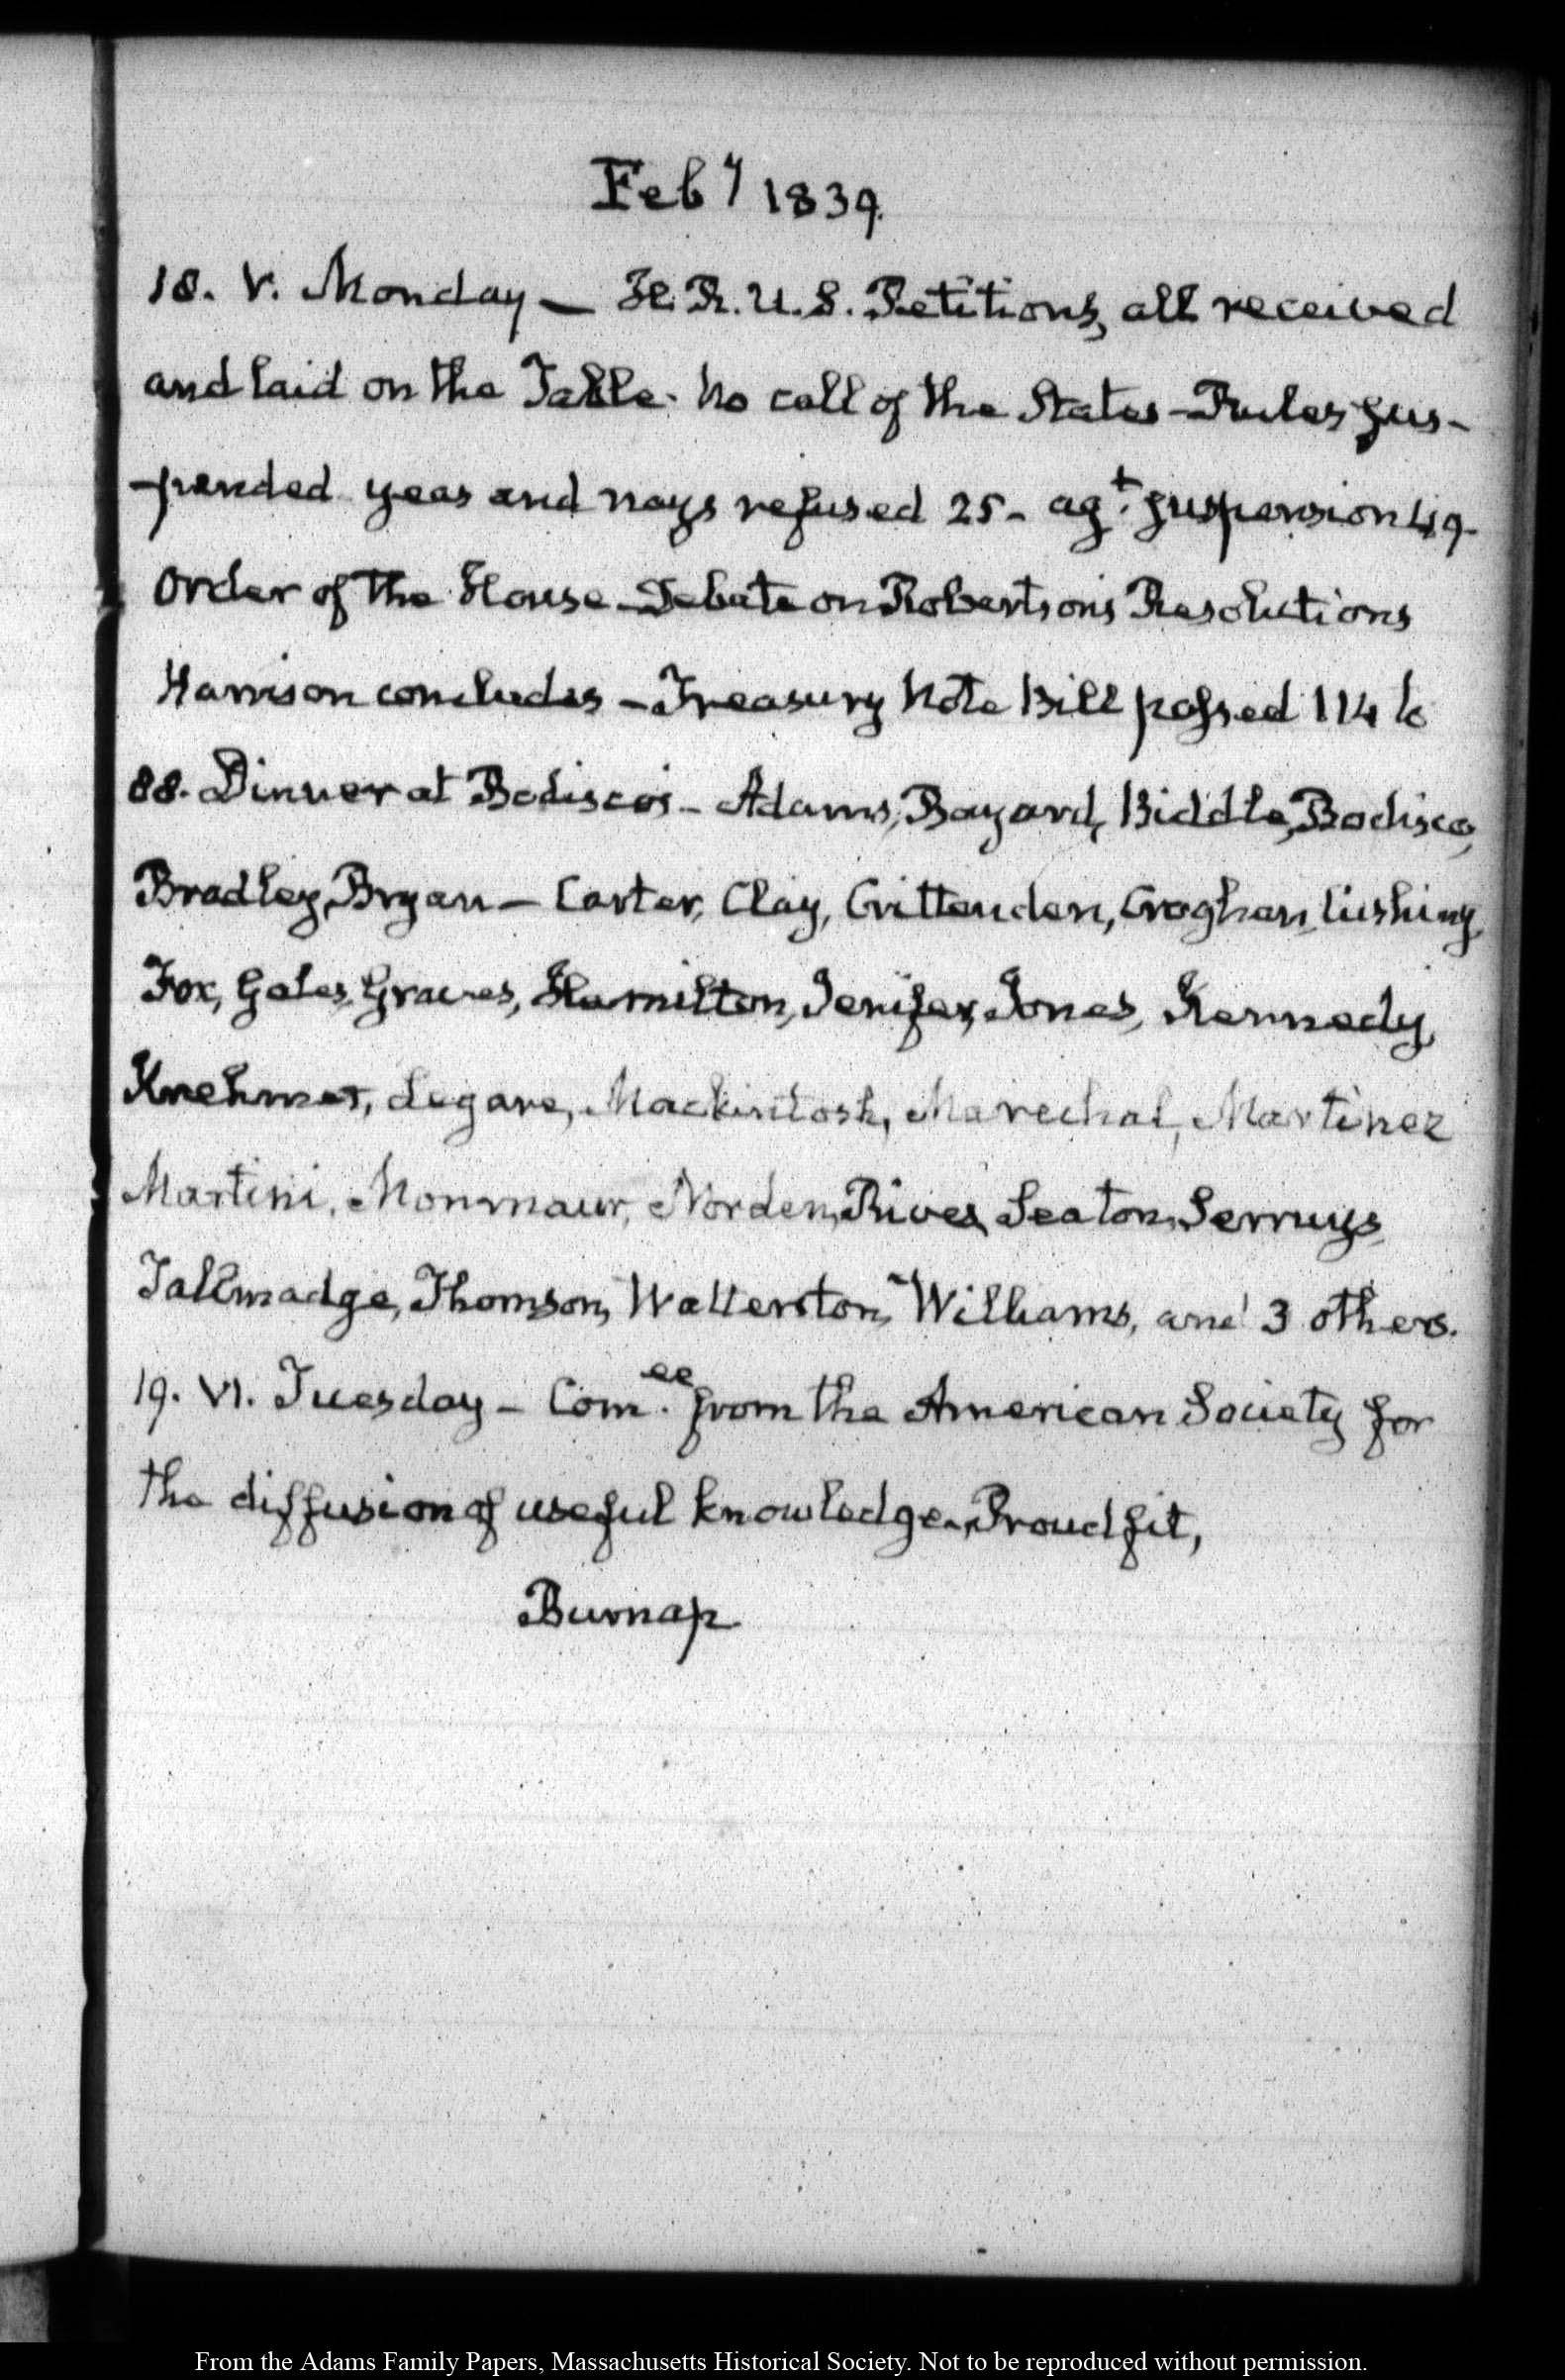 Feby 1839.
18. V. Monday — H. R. U. S. Petitions, all received
and laid on the Table. No call of the States — Rules sus-
-pended yeas and nays refused 25 — agt. suspension 49.
Order of the House — Debate on Robertson's Resolutions
Harrison concludes — Treasury Note Bill passed 114 to
88. Dinner at Bodisco's — Adams, Bayard, Biddle, Bodisco,
Bradley, Bryan — Carter, Clay, Crittenden, Croghan, Cushing,
Fox, Gales, Graves, Hamilton, Jenifer, Jones, Kennedy,
Krehmer, Legare, Mackintosh, Marechal, Martinez
Martini, Monmaur, Norden, Rives, Seaton, Serruys,
Tallmadge, Thomson, Watterston, Williams, and 3 others.
19. VI. Tuesday — Com.ee from the American Society for
the diffusion of useful knowledge. Proudfit,
Burnap
From the Adams Family Papers, Massachusetts Historical Society. Not to be reproduced without permission.